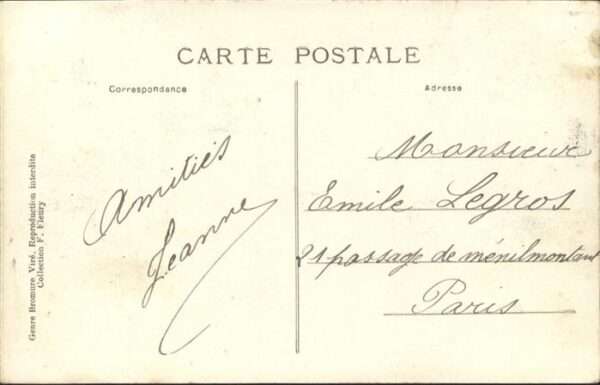 CARTE POSTALE
Correspondance
Adresse
Amitiés
Jeanne
Monsieur
Emile Legros
21 passage de ménilmontant
Paris
Genre Bromure Viré. Reproduction interdite
Collection F. Fleury